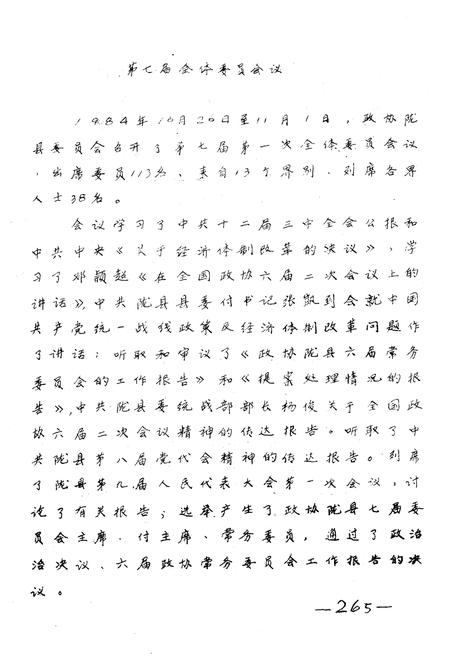 第七届全体委员会议
1984年10月26日至11月1日，政协陇
县委员会召开了第七届第一次全体委员会议
，出席委员113名，来自13个界别，列席各界
人士38名。
会议学习了中共十二届三中全会公报和
中共中央《关于经济体制改革的决议》，学
习了邓颖超《在全国政协六届二次会议上的
讲话》，中共陇县县委付书记张凯到会就中国
共产党统一战线政策及经济体制改革问题作
了讲话；听取和审议了《政协陇县六届常务
委员会的工作报告》和《提案处理情况的报
告》，中共陇县委统战部部长杨俊关于全国政
协六届二次会议精神的传达报告。听取了中
共陇县第八届党代会精神的传达报告。列席
了陇县第九届人民代表大会第一次会议，讨
论了有关报告；选举产生了政协陇县七届委
员会主席、付主席、常务委员，通过了政治
决议、六届政协常务委员会工作报告的决
议。
—265—